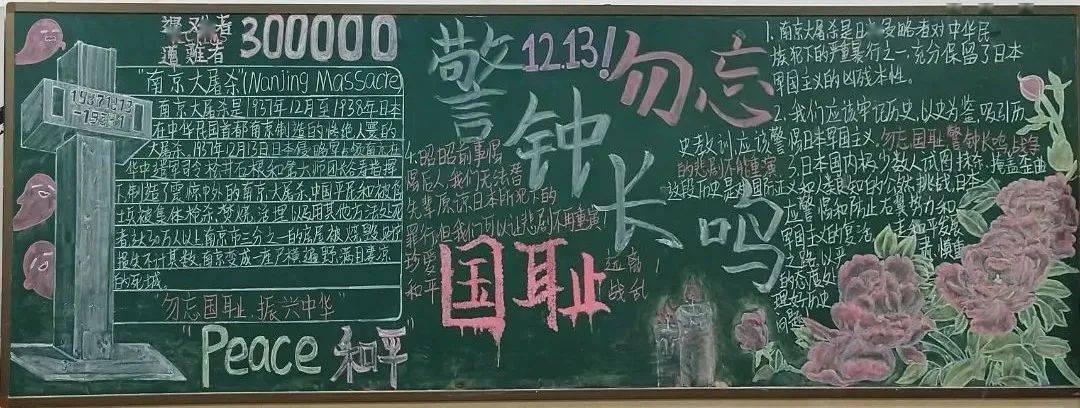 遇难者
遭難者
300000
"南京大屠杀"(Nanjing Massacre)
南京大屠杀是1937年12月至1938年日本
在中华民国首都南京制造的惨绝人寰的
大屠杀。1937年12月13日日本侵略军占领南京在
华中
制造了震惊中外的南京大屠杀,中国平民和被俘
士兵被集体枪杀、焚烧、活埋以及用其他方法处死
者达30万人以上南京市三分之一的房屋被烧毁
损失不计其数,南京变成一座尸横遍野、满目凄凉
的死城。
"勿忘国耻 振兴中华"
"Peace 和平"
警钟长鸣
12.13!
勿忘
国耻
4.昭昭前事,惕
惕后人,我们无法替
先辈原谅日本所犯下的
罪行,但我们可以让悲剧不再重演
珍爱
和平
远离
战乱
1.南京大屠杀是日 侵略者对中华民
族犯下的严重暴行之一,充分保留了日本
军国主义的凶残本性。
2.我们应该牢记历史,以史为鉴,吸引历
史教训,应该警惕日本军国主义,勿忘国耻 警钟长鸣,战争
的悲剧不能重演
3.日本国内极少数人试图抹杀、掩盖、歪曲
这段历史,是对国际正义和人类良知的公然挑战,日本
应警惕和防止右翼势力和
军国主义的复活,走和平发展
之路,以平 、慎重
的态度处
理好历史
问题